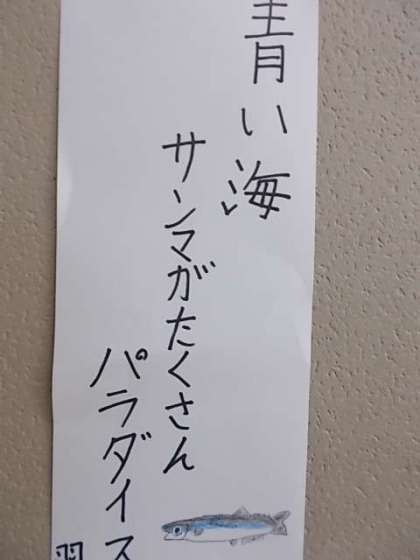 青い海
サンマがたくさん
パラダイス